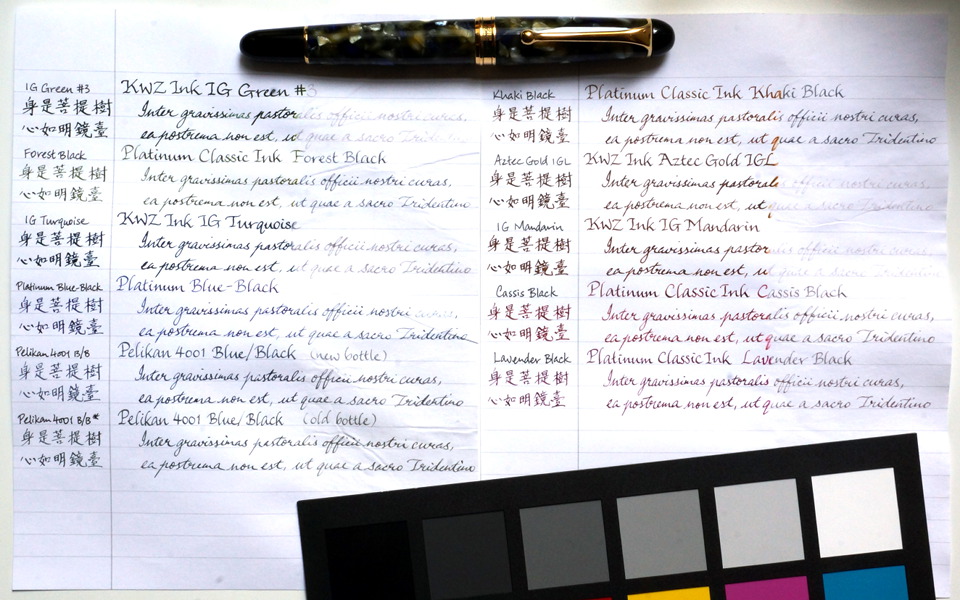 IG Green #3
身是菩提樹
心如明鏡臺
KWZ Ink IG Green #3
Inter gravissimas pastoralis officii nostri curas,
ea postrema non est, ut quae a sacro Tridentino
Forest Black
身是菩提樹
心如明鏡臺
Platinum Classic Ink Forest Black
Inter gravissimas pastoralis officii nostri curas,
ea postrema non est, ut quae a sacro Tridentino
IG Turquoise
身是菩提樹
心如明鏡臺
KWZ Ink IG Turquoise
Inter gravissimas pastoralis officii nostri curas,
ea postrema non est, ut quae a sacro Tridentino
Platinum Blue-Black
身是菩提樹
心如明鏡臺
Platinum Blue-Black
Inter gravissimas pastoralis officii nostri curas,
ea postrema non est, ut quae a sacro Tridentino
Pelikan 4001 B/B
身是菩提樹
心如明鏡臺
Pelikan 4001 Blue/Black (new bottle)
Inter gravissimas pastoralis officii nostri curas,
ea postrema non est, ut quae a sacro Tridentino
Pelikan 4001 B/B*
身是菩提樹
心如明鏡臺
Pelikan 4001 Blue/Black (old bottle)
Inter gravissimas pastoralis officii nostri curas,
ea postrema non est, ut quae a sacro Tridentino
Khaki Black
身是菩提樹
心如明鏡臺
Platinum Classic Ink Khaki Black
Inter gravissimas pastoralis officii nostri curas,
ea postrema non est, ut quae a sacro Tridentino
Aztec Gold IGL
身是菩提樹
心如明鏡臺
KWZ Ink Aztec Gold IGL
Inter gravissimas pastoralis officii nostri curas,
ea postrema non est, ut quae a sacro Tridentino
IG Mandarin
身是菩提樹
心如明鏡臺
KWZ Ink IG Mandarin
Inter gravissimas pastoralis officii nostri curas,
ea postrema non est, ut quae a sacro Tridentino
Cassis Black
身是菩提樹
心如明鏡臺
Platinum Classic Ink Cassis Black
Inter gravissimas pastoralis officii nostri curas,
ea postrema non est, ut quae a sacro Tridentino
Lavender Black
身是菩提樹
心如明鏡臺
Platinum Classic Ink Lavender Black
Inter gravissimas pastoralis officii nostri curas,
ea postrema non est, ut quae a sacro Tridentino